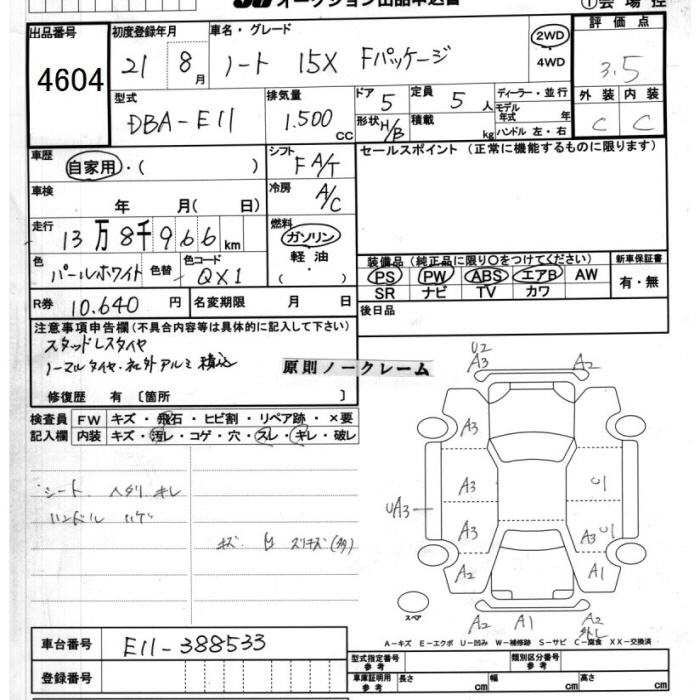 オークション出品申込書
① 会場控
出品番号
4604
初度登録年月
21 8月
車名・グレード
ノート 15X Fパッケージ
2WD
4WD
評価点
3.5
型式
DBA-E11
排気量
1.500 CC
ドア 5
形状 H/B
定員 5 人
積載 kg
ディーラー・並行
モデル年式 年
ハンドル 左・右
外装 内装
C C
車歴
自家用・( )
シフト
F A/T
セールスポイント(正常に機能するものに限ります)
車検
年 月( 日)
冷房
A/C
走行
13万8千966km
燃料
ガソリン
軽油
( ・ )
色
パールホワイト
色替
色コード
QX1
装備品(純正品に限り○をつけてください)
PS PW ABS エアB AW
SR ナビ TV カワ
新車保証書
有・無
R券 10.640 円
名変期限 月 日
後日品
注意事項申告欄(不具合内容等は具体的に記入して下さい)
スタッドレスタイヤ
ノーマルタイヤ・社外アルミ積込
原則ノークレーム
修復歴 有 〔箇所 〕
検査員記入欄
FW キズ・飛石・ヒビ割・リペア跡・×要
内装 キズ・汚レ・コゲ・穴・スレ・キレ・破レ
シート ヘタリ キレ
ハンドル ハゲ
キズ 凹 スリキズ(多)
U2
A3 A2
A3
A3 U1
UA3
A3 A3 U1
A2 A1
スペア
A2 A1 A2
外し
A-キズ E-エクボ U-凹み W-補修跡 S-サビ C-腐食 XX-交換済
車台番号 E11-388533
登録番号
型式指定番号 参考
類別区分番号 参考
車庫証明用 参考 長さ cm 幅 cm 高さ cm